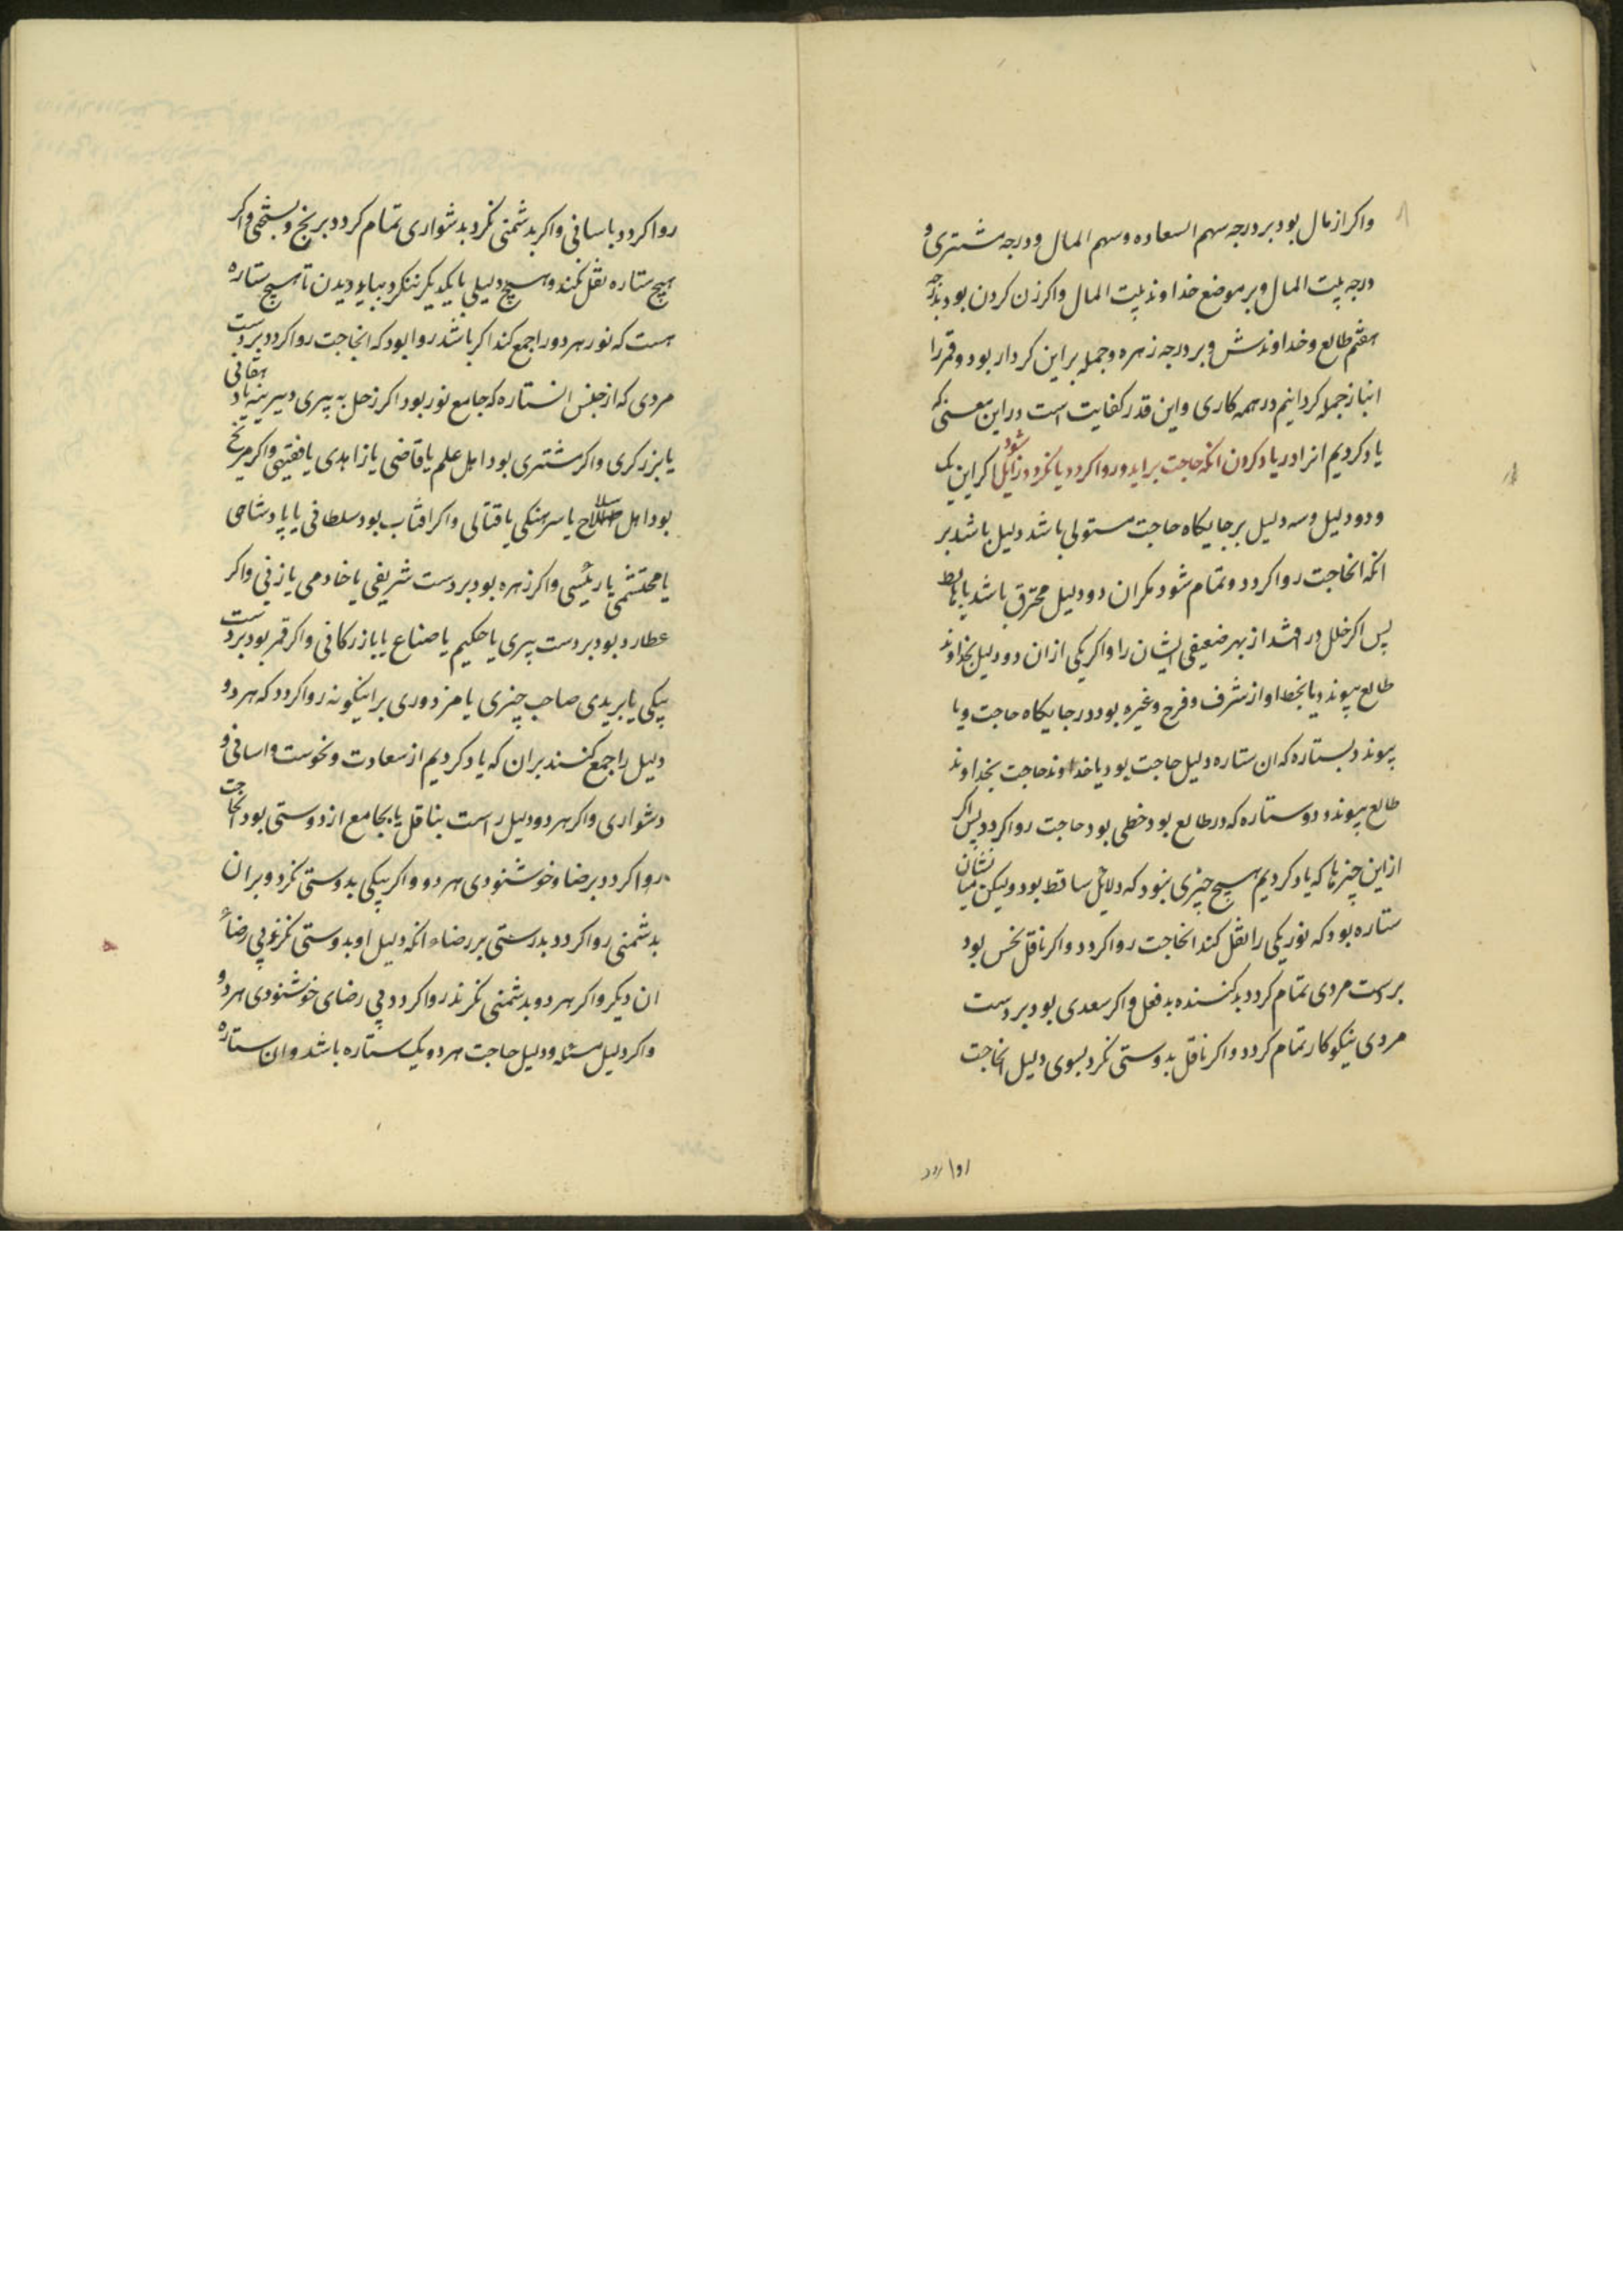 واکر از مال بود بر درجه سهم السعاده و سهم المال و درجه مشتری و
درجه بیت المال و بر موضع خداوند بیت المال واکر زن کردن بود بدرجه
هفتم طالع و خداوندش و بر درجه زهره و جمله براین کردار بود و قمر را
انباز جمله کردانیم در همه کاری و این قدر کفایت است در این معنی که
یاد کردیم انرا در یاد کردن انکه حاجت براید و روا کردد یا نکردد زایل شود اکر این یک
و دو دلیل و سه دلیل بر جایکاه حاجت مستولی باشد دلیل باشد بر
انکه انحاجت روا کردد و تمام شود مکر ان دو دلیل محترق باشد یا هابط
پس اکر خلل در افتد از بهر ضعیفی ایشان را واکر یکی از ان دو دلیل بخداوند
طالع پیوندد یا بخط او از شرف و فرح و غیره بود در جایکاه حاجت و یا
پیوندد بستاره که ان ستاره دلیل حاجت بود یا خداوند حاجت بخداوند
طالع پیوندد و ستاره که در طالع بود خطی بود حاجت روا کردد پس اکر
از این چیزها که یاد کردیم هیچ چیزی نبود که دلائل ساقط بود ولیکن میانشان
ستاره بود که نور یکی را نقل کند انحاجت روا کردد واکر ناقل نحس بود
بر دست مردی تمام کردد بد کننده بد فعل واکر سعدی بود بر دست
مردی نیکوکار تمام کردد واکر ناقل بدوستی نکرد بسوی دلیل انحاجت
روا کردد
روا کردد باسانی واکر بدشمنی نکرد بدشواری تمام کردد برنج و بسختی واکر
هیچ ستاره نقل نکند و هیچ دلیلی بایکدیکر ننکرد بباید دیدن تا هیچ ستاره
هست که نور هر دو را جمع کند اکر باشد روا بود که انحاجت روا کردد بر دست
مردی که از جنس انستاره که جامع نور بود اکر زحل به پیری دیرینه یا دهقانی
یا بزرکری واکر مشتری بود اهل علم یا قاضی یا زاهدی یا فقیهی واکر مریخ
بود اهل سلاح یا سرهنکی یا قتالی واکر افتاب بود سلطانی یا پادشاهی
یا محتشمی یا رئیسی واکر زهره بود بر دست شریفی یا خادمی یا زنی واکر
عطارد بود بر دست پیری یا حکیم یا صناع یا بازرکانی واکر قمر بود بر دست
پیکی یا بریدی صاحب چیزی یا مزدوری بر اینکونه روا کردد که هر دو
دلیل را جمع کنند بران که یاد کردیم از سعادت و نحوست و اسانی و
دشواری واکر هر دو دلیل راست بناقل یا بجامع از دوستی بود انحاجت
روا کردد برضا و خوشنودی هر دو واکر بیکی بدوستی نکرد و بران
بدشمنی روا کردد بدرستی بر رضاء انکه دلیل او بدوستی نکرند بی رضاء
ان دیکر واکر هر دو بدشمنی نکرند روا کردد بی رضای خوشنودی هر دو
واکر دلیل مسئله و دلیل حاجت هر دو یک ستاره باشد و ان ستاره